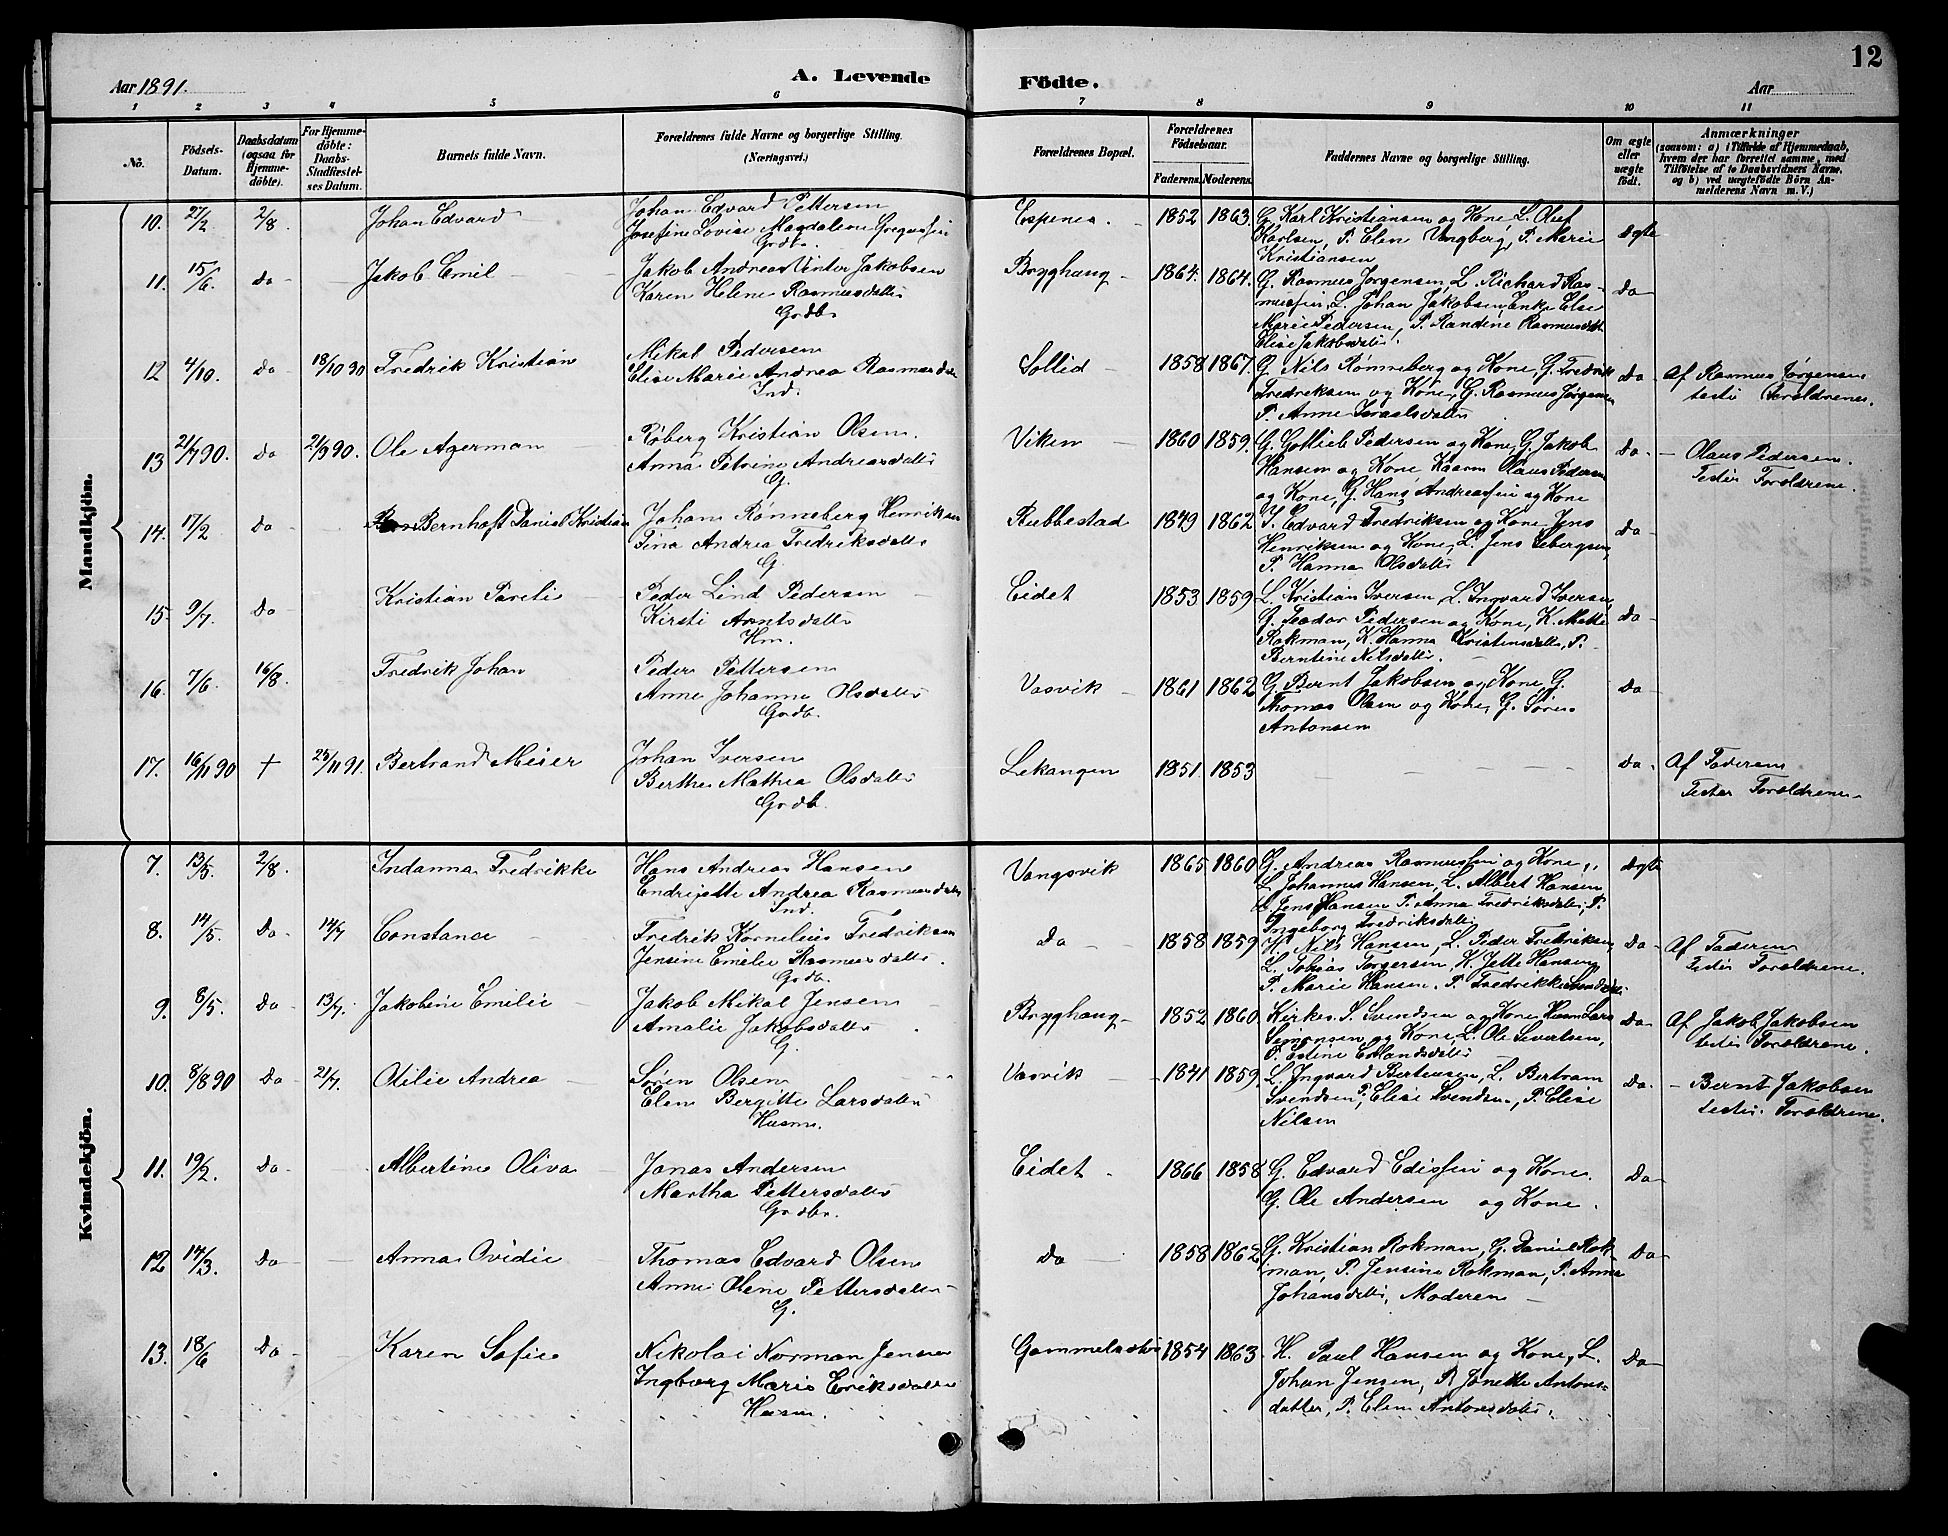 Aar 1891.
A. Levende
Födte.
12
Aar
1 2 3 4 5 6 7 8 9 10 11
No.
Födsels-Datum.
Daabsdatum (ogsaa for Hjemmedöbte).
For Hjemmedöbte: Daabs-Stadfæstelses Datum.
Barnets fulde Navn.
Forældrenes fulde Navne og borgerlige Stilling. (Næringsvei.)
Forældrenes Bopæl.
Forældrenes Födselsaar.
Faderens. Moderens.
Faddernes Navne og borgerlige Stilling.
Om ægte eller uægte født.
Anmærkninger
(saasom: a) i Tilfælde af Hjemmedaab, hvem der har forrettet samme, med Tilföielse af to Daabsvidners Navne, og b) ved uægtefödte Börn Anmelderens Navn m. V.)
Mandkjön.
10. 27/2 2/8. Johan Edvard
Johan Edvard Pettersen
Josefine Lovise Magdalene Gregusen
Grdbr.
Espenes. 1852 1863.
G. Karl Kristiansen og Kone, L. Oluf
Karlsen, P. Elen Vangberg, P. Marie
Kristiansen
Ægte
11. 15/6. Do Jakob Emil
Jakob Andreas Vinter Jakobsen
Karen Helene Rasmusdatter
Grdbr
Bryghaug 1864. 1864.
G. Rasmus Jørgensen, L. Richard Ras-
mussen, L. Johan Jakobsen, Enke Else
Marie Pedersen, P. Randine Rasmusdtt
Elise Jakobsdatter.
Do
12 4/10. Do 18/10 90 Fredrik Kristian
Mikal Pedersen
Elise Marie Andrea Rasmusdatter
Ind.
Sollid 1858 1867.
G. Nils Rønneberg og Kone, G. Fredrik
Fredriksen og Kone, G. Rasmus Jørgensen
P. Anne Israelsdatter
Do
Af Rasmus Jørgensen
testis Forældrenes.
13 21/7 90. Do 21/9 90. Ole Agerman
Røberg Kristian Olsen.
Anna Petrine Andreasdatter
G.
Viken 1860 1859.
G. Gotlieb Pedersen og Kone, G. Jakob
Hansen og Kone, Olaus Pedersen
og Kone, G. Hans Andreassen og Kone
Do
Olaus Pedersen.
Testis Forældrene.
14. 17/2 Do Bernhoft Daniel Kristian
Johan Rønneberg Henriksen
Tina Andrea Fredriksdatter
G.
Rubbestad 1849 1862
Edvard Fredriksen og Kone, Jens
Henriksen og Kone, L. Jens Sebergsen,
P. Hanna Olsdatter
Do
15. 9/7. Do Kristian Pareli
Peder Lind Pedersen
Kirsti Arntsdatter
Hm.
Eidet 1853 1859
L. Kristian Iversen, L. Ingvard Iversen,
G. Teodor Pedersen og Kone, K. Mette
Rokman, K. Hanna Kristensdatter, P.
Berntine Nilsdatter.
Do
16. 7/6. 16/8. Fredrik Johan
Peder Pettersen
Anne Johanna Olsdatter
Grdb.
Vasvik 1861 1862
G. Bernt Jakobsen og Kone, G.
Thomas Olsen og Kone, G. Søren
Antonsen
Do
17. 16/11 90 + 25/11 91. Bertrand Meier
Johan Iversen
Berthe Mathea Olsdatter
Grdb.
Lekangen 1851. 1853
Do.
Af Faderen
Testes Forældrene
Kvindekjön.
7. 13/5 2/8. Indanna Fredrikke
Hans Andreas Hansen
Endrijette Andrea Rasmusdatter
Ind.
Vangsvik 1865 1860
G. Andreas Rasmussen og Kone,
L. Johannes Hansen, L. Albert Hansen
L. Jens Hansen P. Anna Fredriksdatter, P.
Ingeborg Fredriksdatter
Ægte
8. 14/5. Do 14/7 Constance
Fredrik Kornelius Fredriksen
Jensine Emelie Rasmusdatter.
Grdb.
Do 1858 1859
H. Nils Hansen, L. Peder Fredriksen,
L. Tobias Torgersen, K. Jette Hansen,
P. Marie Hansen. P. Fredrikke
Do
Af Faderen
Testis Forældrene.
9. 8/5. Do 13/7. Jakobine Emilie
Jakob Mikal Jensen
Amalie Jakobsdatter
G.
Bryghaug 1852 1860.
Kirkes. S. Svendsen og Kone, Husm Lars
Simonsen og Kone, L. Ole Sivertsen,
P. Estine Erlandsdatter
Do
Af Jakob Jakobsen
testis Forældrene.
10. 8/8 90 Do 21/7. Otilie Andrea
Søren Olsen
Elen Bergitte Larsdatter
Husm.
Vasvik 1841 1859
L. Ingvard Bertensen, L. Bertram
Svendsen, P. Elise Svendsen, P. Elise
Nilsen
Do.
Bernt Jakobsen
testis. Forældrene.
11. 19/2. Do Albertine Oliva
Jonas Andersen
Martha Pettersdatter
Grdbr.
Eidet 1866 1858
G. Edvard Edissen og Kone.
G. Ole Andersen og Kone.
Do
12 14/3. Do Anna Ovidie
Thomas Edvard Olsen
Anne Oline Pettersdatter
G.
Do 1858 1862
G. Kristian Rokman, G. Daniel Rok-
man, P. Jensine Rokman, P. Anna
Johansdatter, Moderen
Do
13. 18/6 Do Karen Sofie
Nikolai Norman Jensen
Ingborg Marie Eriksdatter
Husm.
Gammelsæter 1854 1863
H. Paul Hansen og Kone, L.
Johan Jensen, P. Jonette Antons-
datter, P. Elen Antonsdatter.
Do